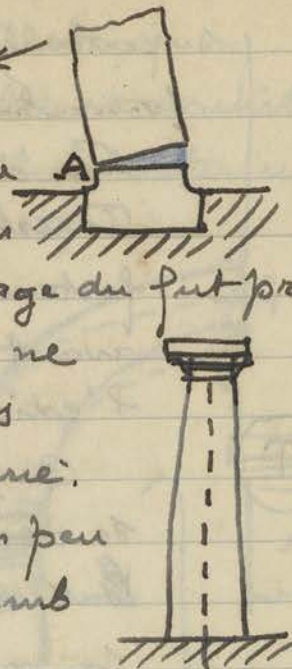 A
age du fut pr
ne
s
rie.
peu
mb